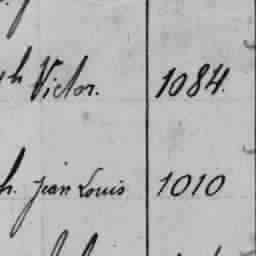 h Victor. 1084.
h. jean Louis 1010